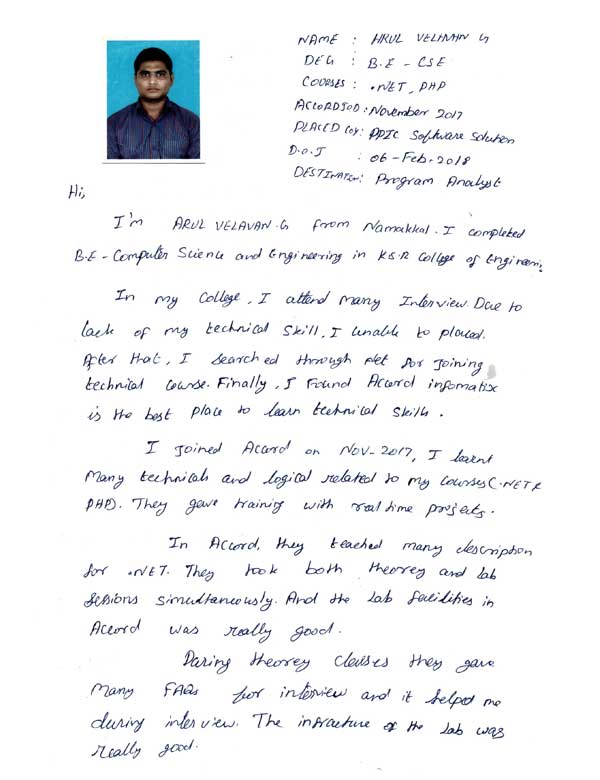 NAME : ARUL VELAVAN G
DEG : B.E - CSE
COURSES : .NET, PHP
ACCORD JOD : November 2017
PLACED Coy : PPIC Software Solution
D.O.J : 06-Feb-2018
DESTINATION : Program Analyst
Hi,
I'm ARUL VELAVAN.G from Namakkal. I completed
B.E - Computer Science and Engineering in K.S.R College of Engineering.
In my College, I attend many Interview. Due to
lack of my technical skill, I unable to placed.
After that, I searched through Net for joining
technical course. Finally, I Found Accord infomatix
is the best place to learn technical skills.
I joined Accord on Nov-2017, I learnt
many technicals and logical related to my courses (.NET &
PHP). They gave training with real time projects.
In Accord, they teached many description
for .NET. They took both theorey and lab
sessions simultaneously. And the Lab facilities in
Accord was really good.
During theorey classes they gave
many FAQs for interview and it helped me
during interview. The infracture of the Lab was
really good.